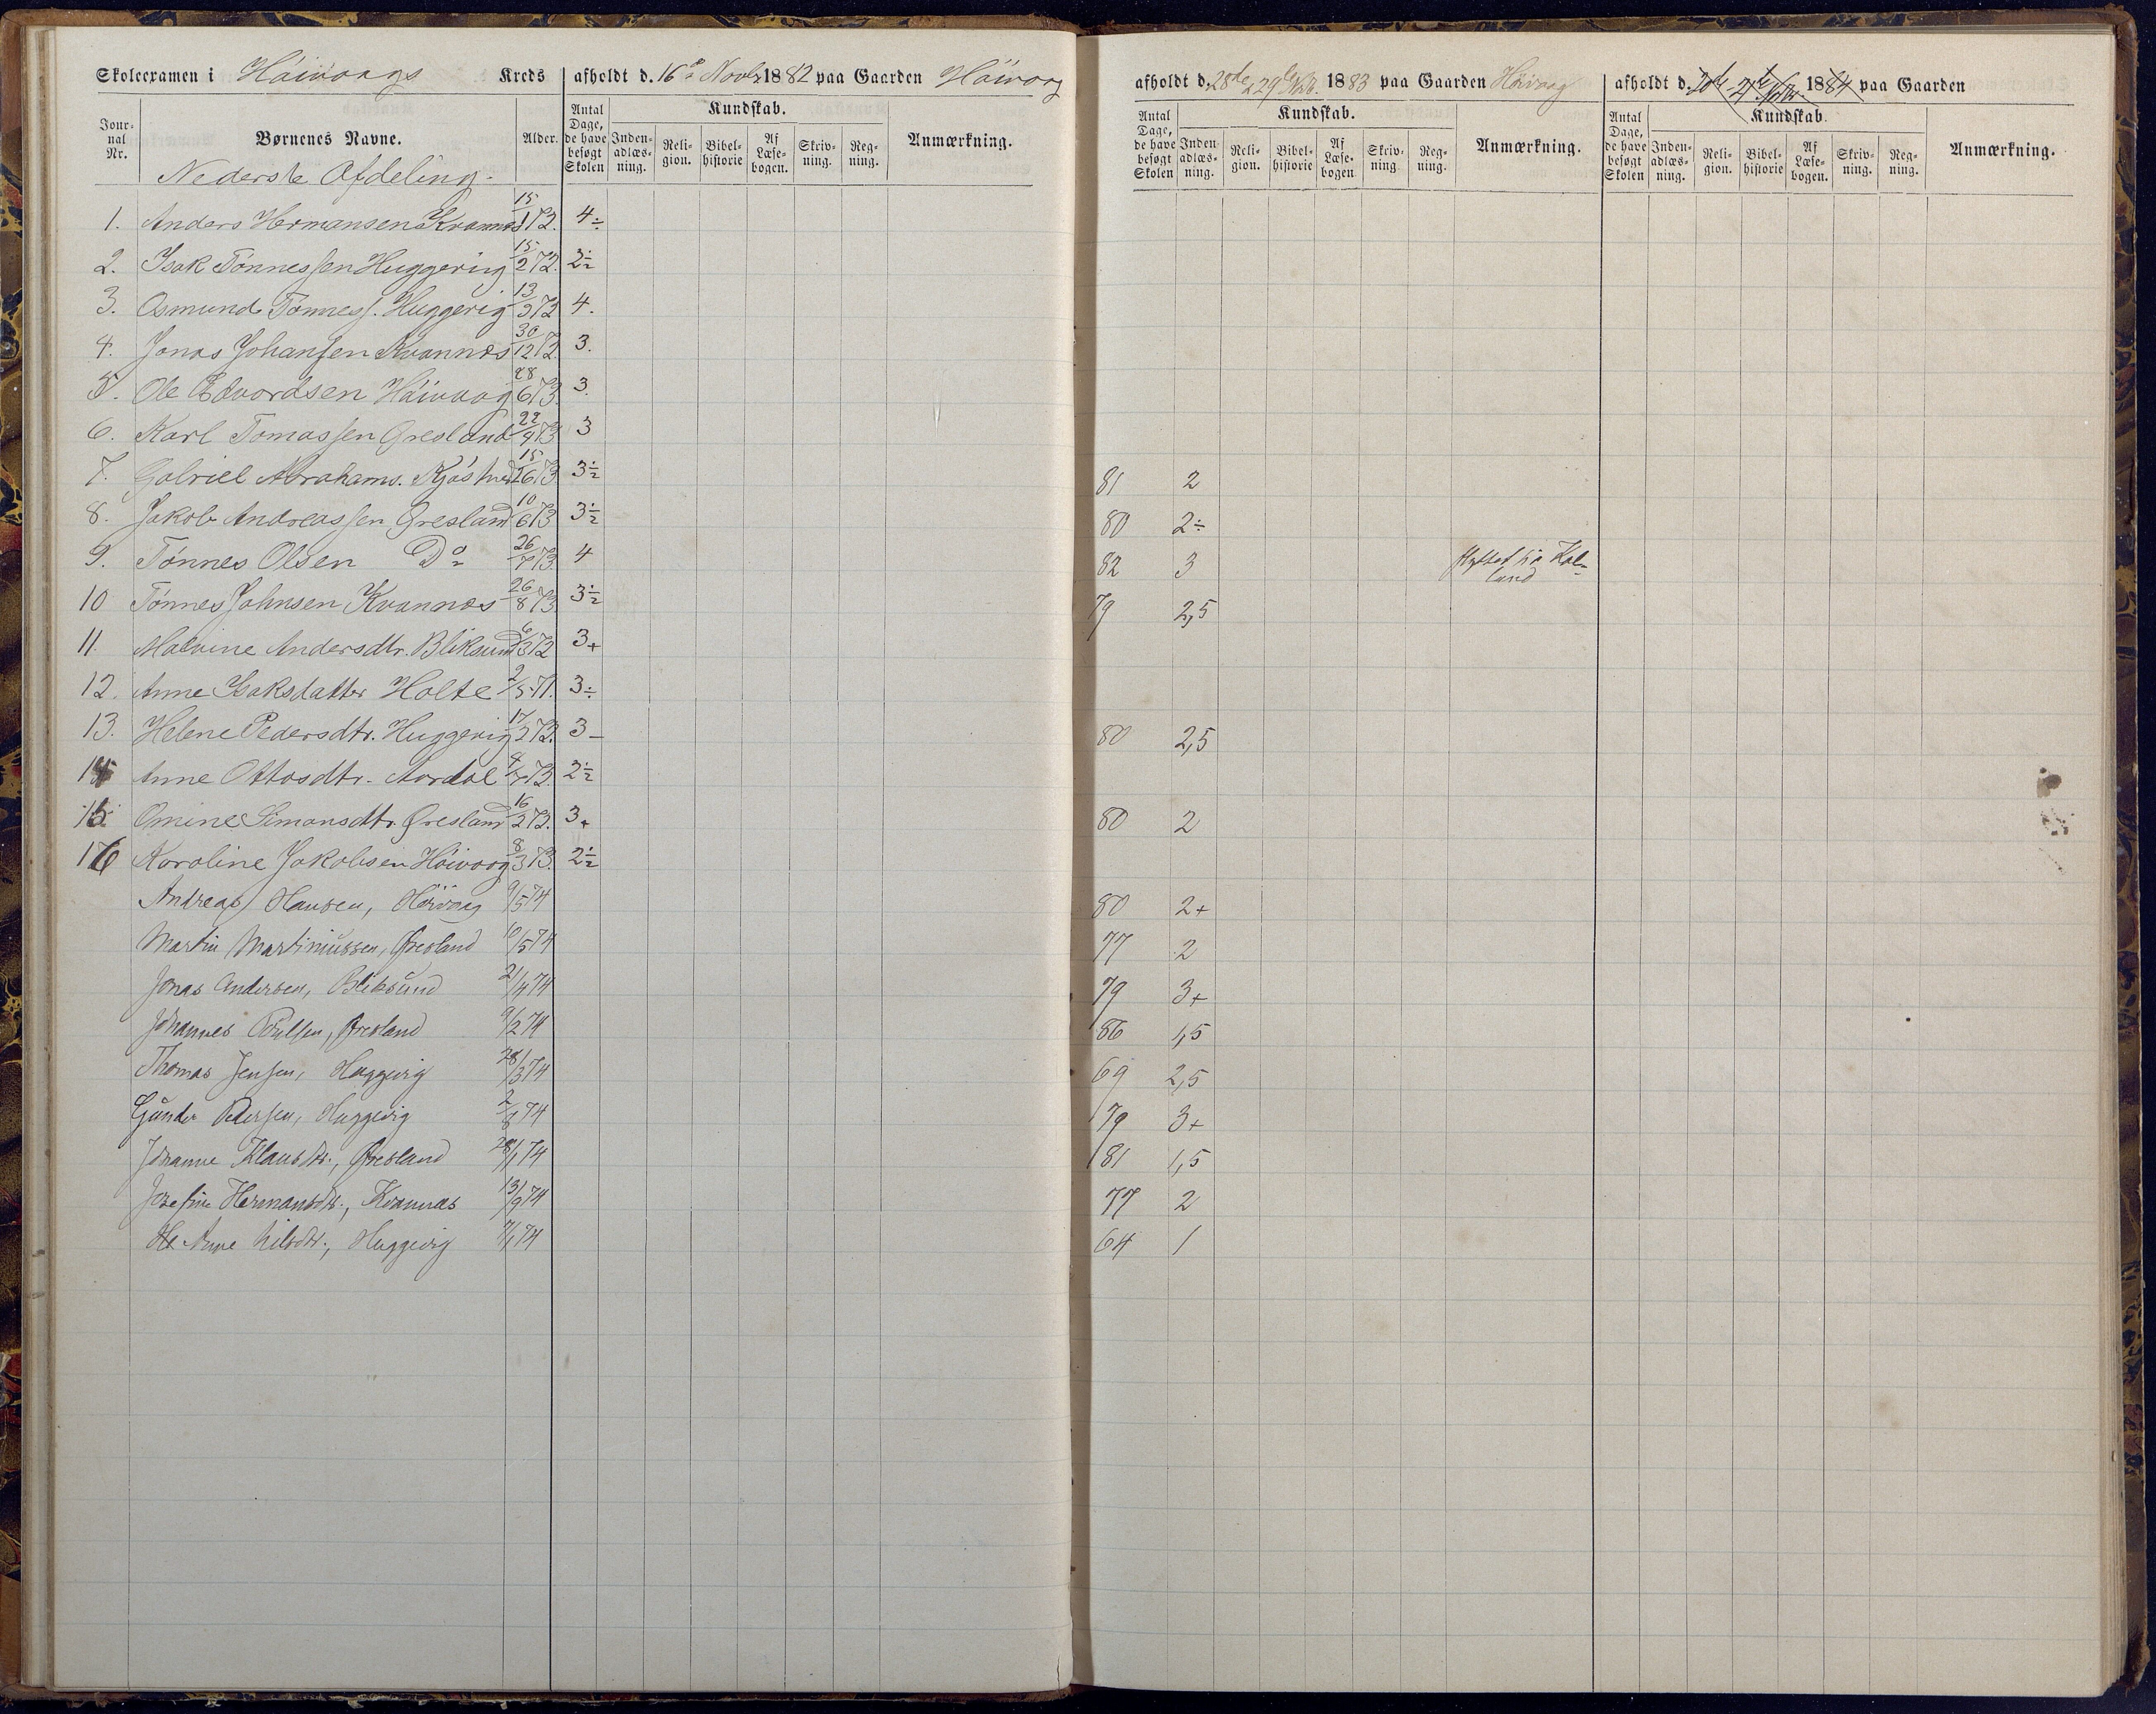 Skoleexamen i Höivaags Kreds afholdt d. 16de Novbr 1882 paa Gaarden Höivaag
Jour-nal Nr. Børnenes Navne. Alder. Antal Dage, de have besøgt Skolen Kundskab. Inden-adlæs-ning. Reli-gion. Bibel-historie Af Læse-bogen. Skriv-ning. Reg-ning. Anmærkning.
Nederste Afdeling.
1. Anders Hermansen Kvannes 15/1 72. 4÷
2. Isak Tönnessen Huggerig 15/2 72. 2÷
3. Osmund Tönness. Huggerig 13/3 72 4.
4. Jonas Johansen Kvannes 30/12 72. 3.
5. Ole Edvardsen Höivaag 28/6 73. 3.
6. Karl Tomassen Öresland 22/4 73 3
7. Gabriel Abrahams. 15/6 73. 3÷
8. Jakob Andreassen Öresland 10/6 73 3÷
9. Tönnes Olsen Do 26/7 73. 4
10 Tönnes Johnsen Kvannes 26/8 73. 3÷
11. Malvine Andersdtr. Bliksund 6/3 72 3+
12. Anne Isaksdatter Holte 2/5 71. 3÷
13. Helene Pedersdtr. Huggerig 17/2 72. 3-
14 Anne Ottosdtr. Aardal 4/7 73. 2÷
15 Omine Simonsdtr. Öresland 16/2 72. 3+
16 Karoline Jakobsen Höivaag 8/3 73. 2÷
Andreas Hansen, Höivaag 9/5 74
Martin Martiniussen, Öresland 10/5 74
Jonas Andersen, Bliksund 21/4 74
Johannes, Öresland 9/2 74
Thomas Jensen, Huggerig 28/3 74
Gunder Pedersen, Huggerig 2/8 74
Johanne Klausdtr., Öresland 28/1 74
Josefine Hermansdtr., Kvannes 13/9 74
Anne Nilsdtr., Huggerig 7/1 74
afholdt d. 28de & 29de Novb. 1883 paa Gaarden Höivaag
Antal Dage, de have besøgt Skolen Kundskab. Inden-adlæs-ning. Reli-gion. Bibel-historie Af Læse-bogen. Skriv-ning. Reg-ning. Anmærkning.
81 2
80 2÷
82 3 flyttet til Kal-
land
79 2,5
80 2,5
80 2
80 2+
77 2
79 3+
86 1,5
69 2,5
79 3+
81 1,5
77 2
64 1
afholdt d. 1884 paa Gaarden
Antal Dage, de have besøgt Skolen Kundskab. Inden-adlæs-ning. Reli-gion. Bibel-historie Af Læse-bogen. Skriv-ning. Reg-ning. Anmærkning.